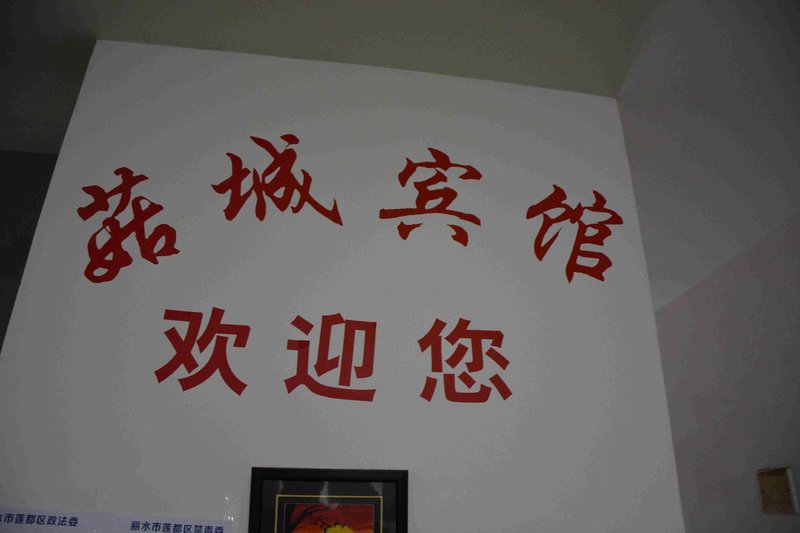 菇城宾馆
欢迎您
水市莲都区政法委 丽水市莲都区禁毒委